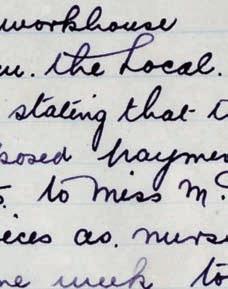 workhouse
the Local.
stating that t
posed paymen
to Miss M.
ices as. nurse
ne week to